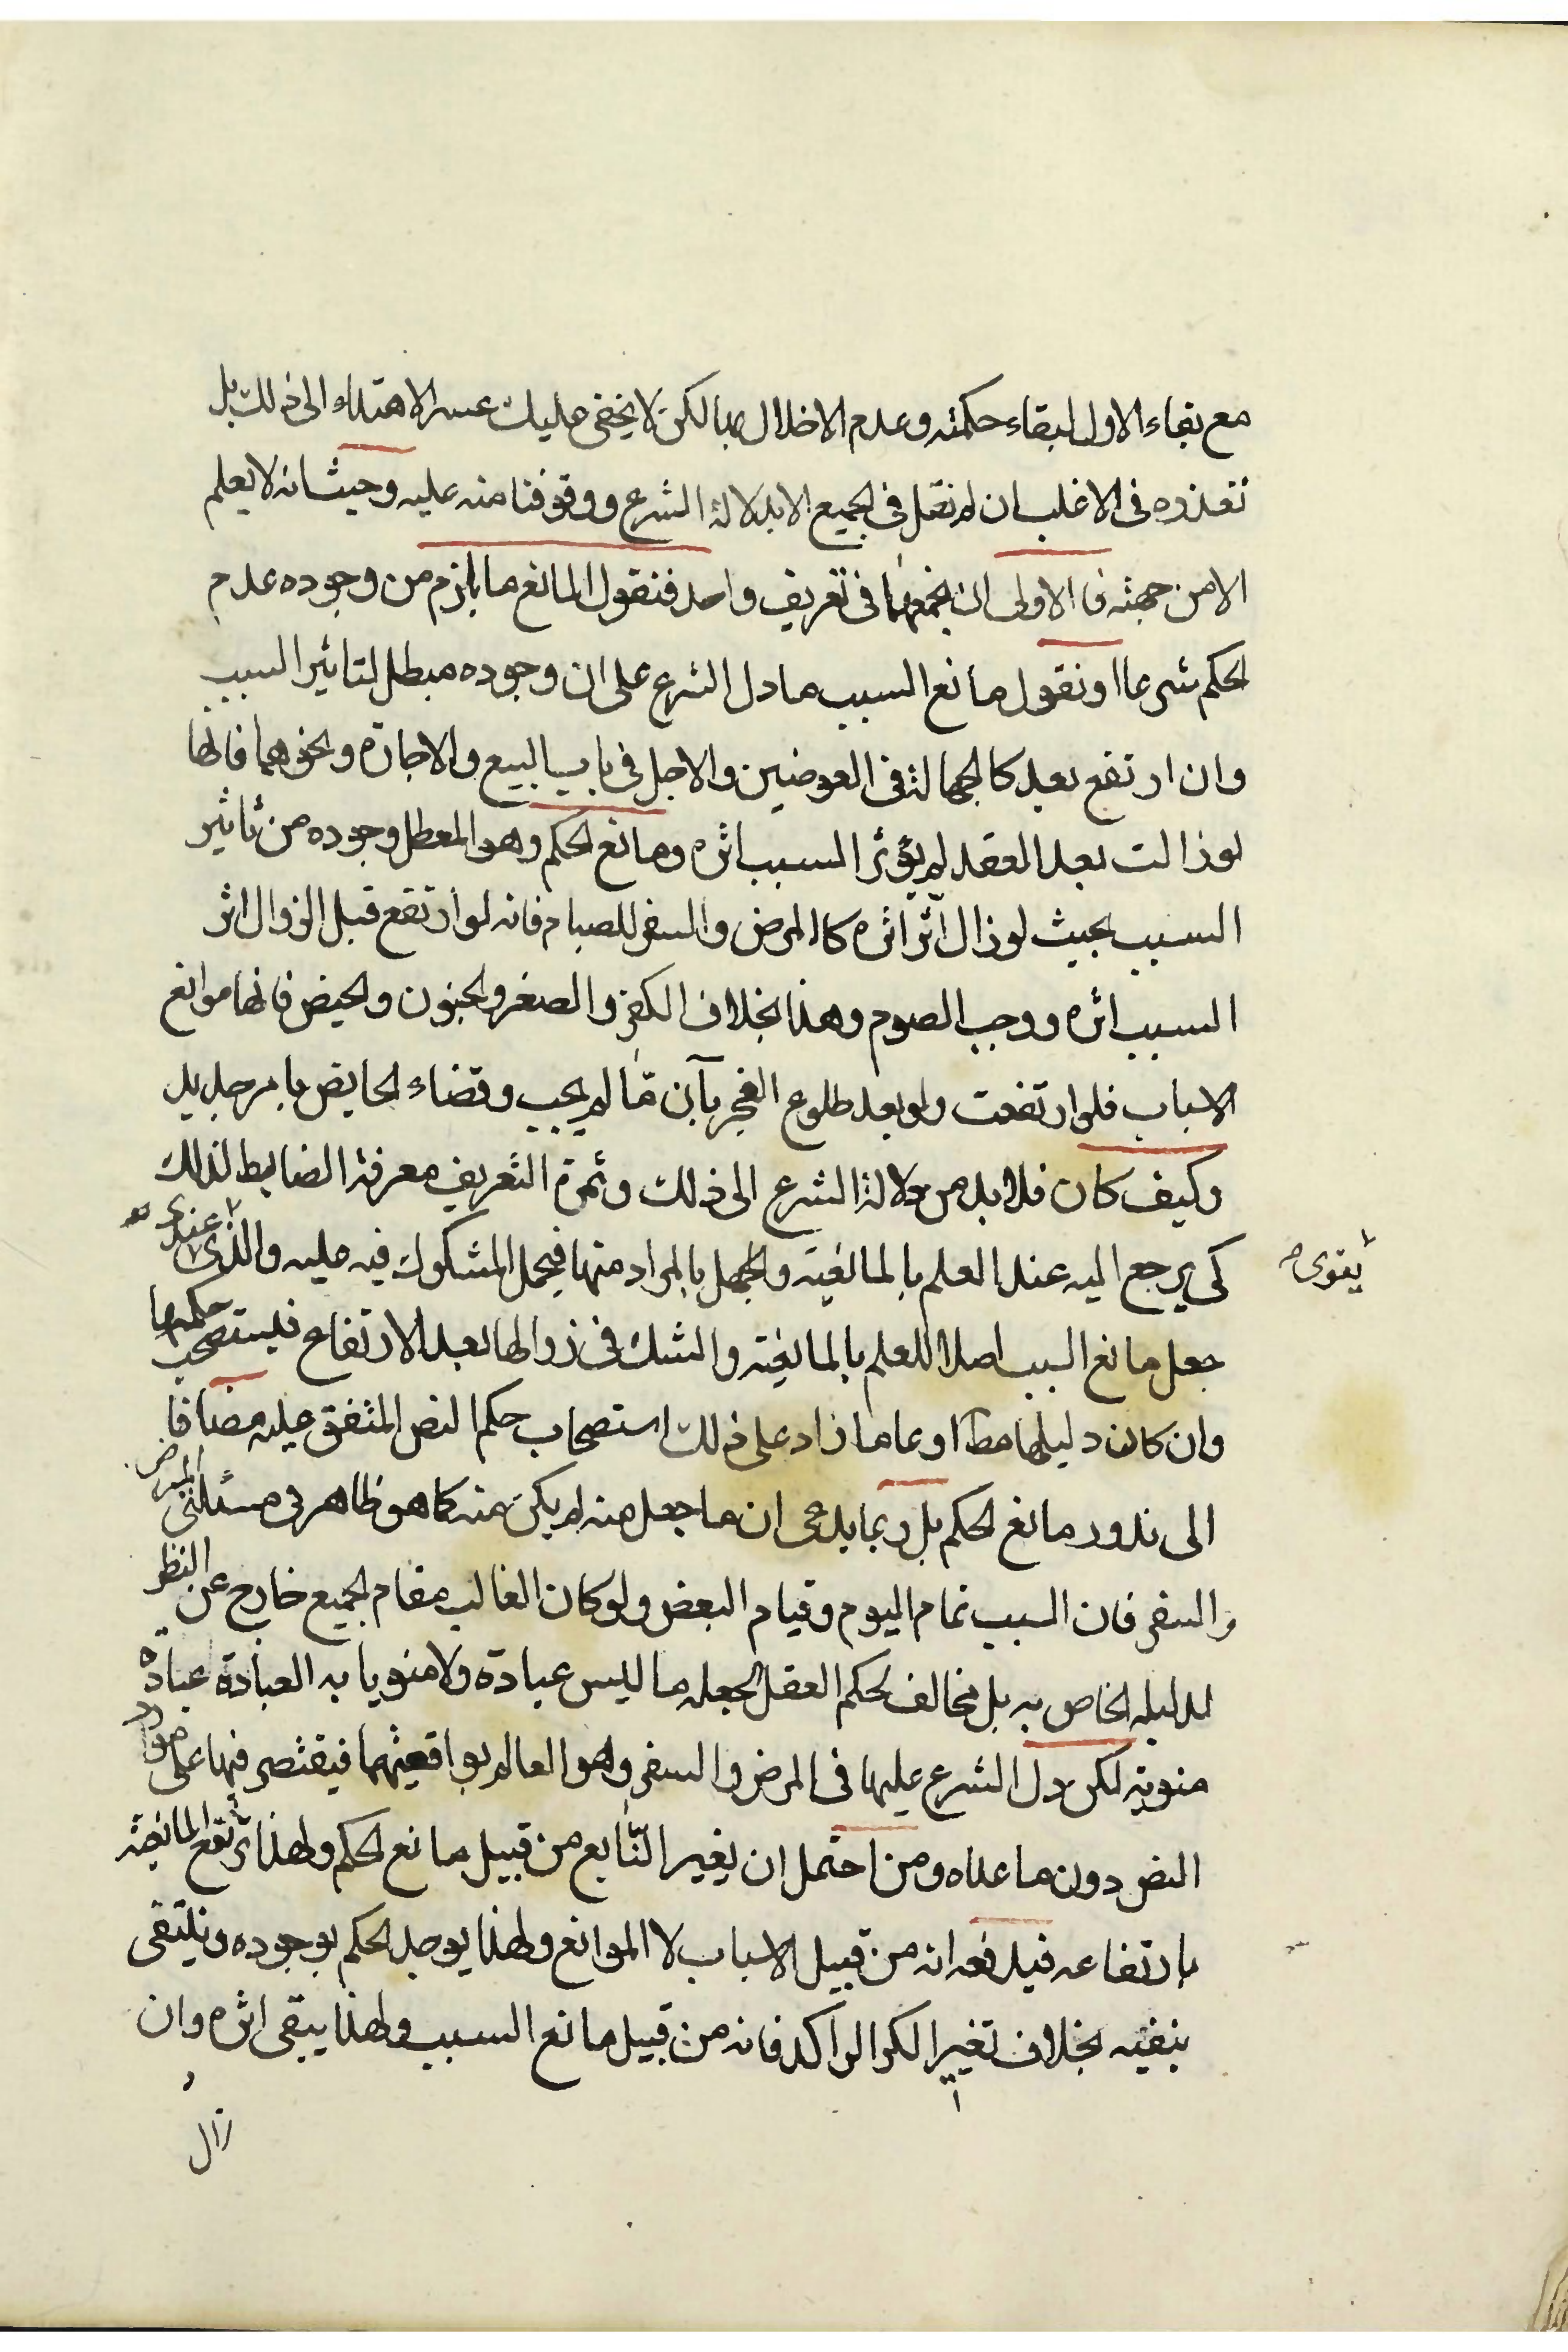 مع بقاء الاول لبقاء حكمته وعدم الاخلال بها لكن لا يخفى عليك عسر الاهتداء الى ذلك بل
تعذره فى الاغلب ان لم نقل فى الجميع الا بدلالة الشرع ووقوفنا منه عليه وحيث انه لا يعلم
الا من جهته فالاولى ان نجمعهما فى تعريف واحد فنقول المانع ما يلزم من وجوده عدم
الحكم شرعا او نقول مانع السبب ما دل الشرع على ان وجوده مبطل لتاثير السبب
وان ارتفع بعد كالجهالة فى العوضين والاجل فى بابى البيع والاجارة ونحوهما فانها
لو زالت بعد العقد لم يؤثر السبب اثره ومانع الحكم وهو المعطل وجوده من تاثير
السبب بحيث لو زال اثر اثره كالمرض والسفر للصيام فانه لو ارتفع قبل الزوال اثر
السبب اثره ووجب الصوم وهذا بخلاف الكفر والصغر والجنون والحيض فانها موانع
الاسباب فلو ارتفعت ولو بعد طلوع الفجر بآن مّا لم يجب وقضاء الحايض بامر جديد
وكيف كان فلا بد من دلالة الشرع الى ذلك وثمرة التعريف معرفة الضابط لذلك
كى يرجع اليه عند العلم بالمانعية والجهل بالمراد منها فيحمل المشكوك فيه عليه والذى عندى
يقوى
جعل مانع السبب اصلا للعلم بالمانعية والشك فى زوالها بعد الارتفاع فليستصحب حكمها
وان كان دليلها مط او عاما زاد على ذلك استصحاب حكم النص المتفق عليه مضافا
الى ندور مانع الحكم بل ربما يدعى ان ما جعل منه لم يكن منه كما هو ظاهر فى مسئلتى المرض
والسفر فان السبب تمام اليوم وقيام البعض ولو كان الغالب مقام الجميع خارج عن النظر
لدليله الخاص به بل مخالف لحكم العقل لجعله ما ليس عبادة ولا منويا به العبادة عبادة
منوية لكن دل الشرع عليها فى المرض والسفر وهو العالم بواقعيتهما فيقتصر فيها على موارد
النص دون ما عداه ومن احتمل ان يغير النابع من قبيل مانع الحكم ولهذا ترتفع المانعية
بارتفاعه فيدفعه انه من قبيل الاسباب لا الموانع ولهذا يوجد الحكم بوجوده وينتفى
بنفيه بخلاف تغير الكر الراكد فانه من قبيل مانع السبب ولهذا يبقى اثره وان
زال